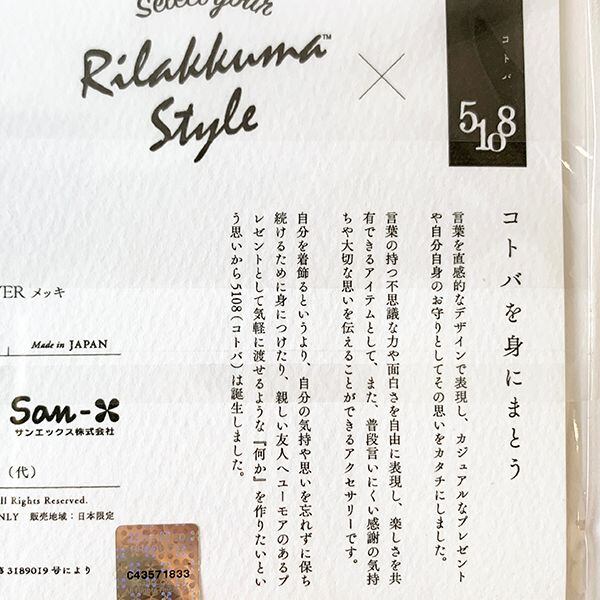 Select your
Rilakkuma™
Style
×
コトバ
5108
コトバを身にまとう
言葉を直感的なデザインで表現し、カジュアルなプレゼント
や自分自身のお守りとしてその思いをカタチにしました。
言葉の持つ不思議な力や面白さを自由に表現し、楽しさを共
有できるアイテムとして、また、普段言いにくい感謝の気持
ちや大切な思いを伝えることができるアクセサリーです。
自分を着飾るというより、自分の気持や思いを忘れずに保ち
続けるために身につけたり、親しい友人へユーモアのあるプ
レゼントとして気軽に渡せるような『何か』を作りたいとい
う思いから5108(コトバ)は誕生しました。
VER メッキ
Made in JAPAN
San-X
サンエックス株式会社
(代)
ll Rights Reserved.
ONLY 販売地域:日本限定
3189019 号により
C43571833